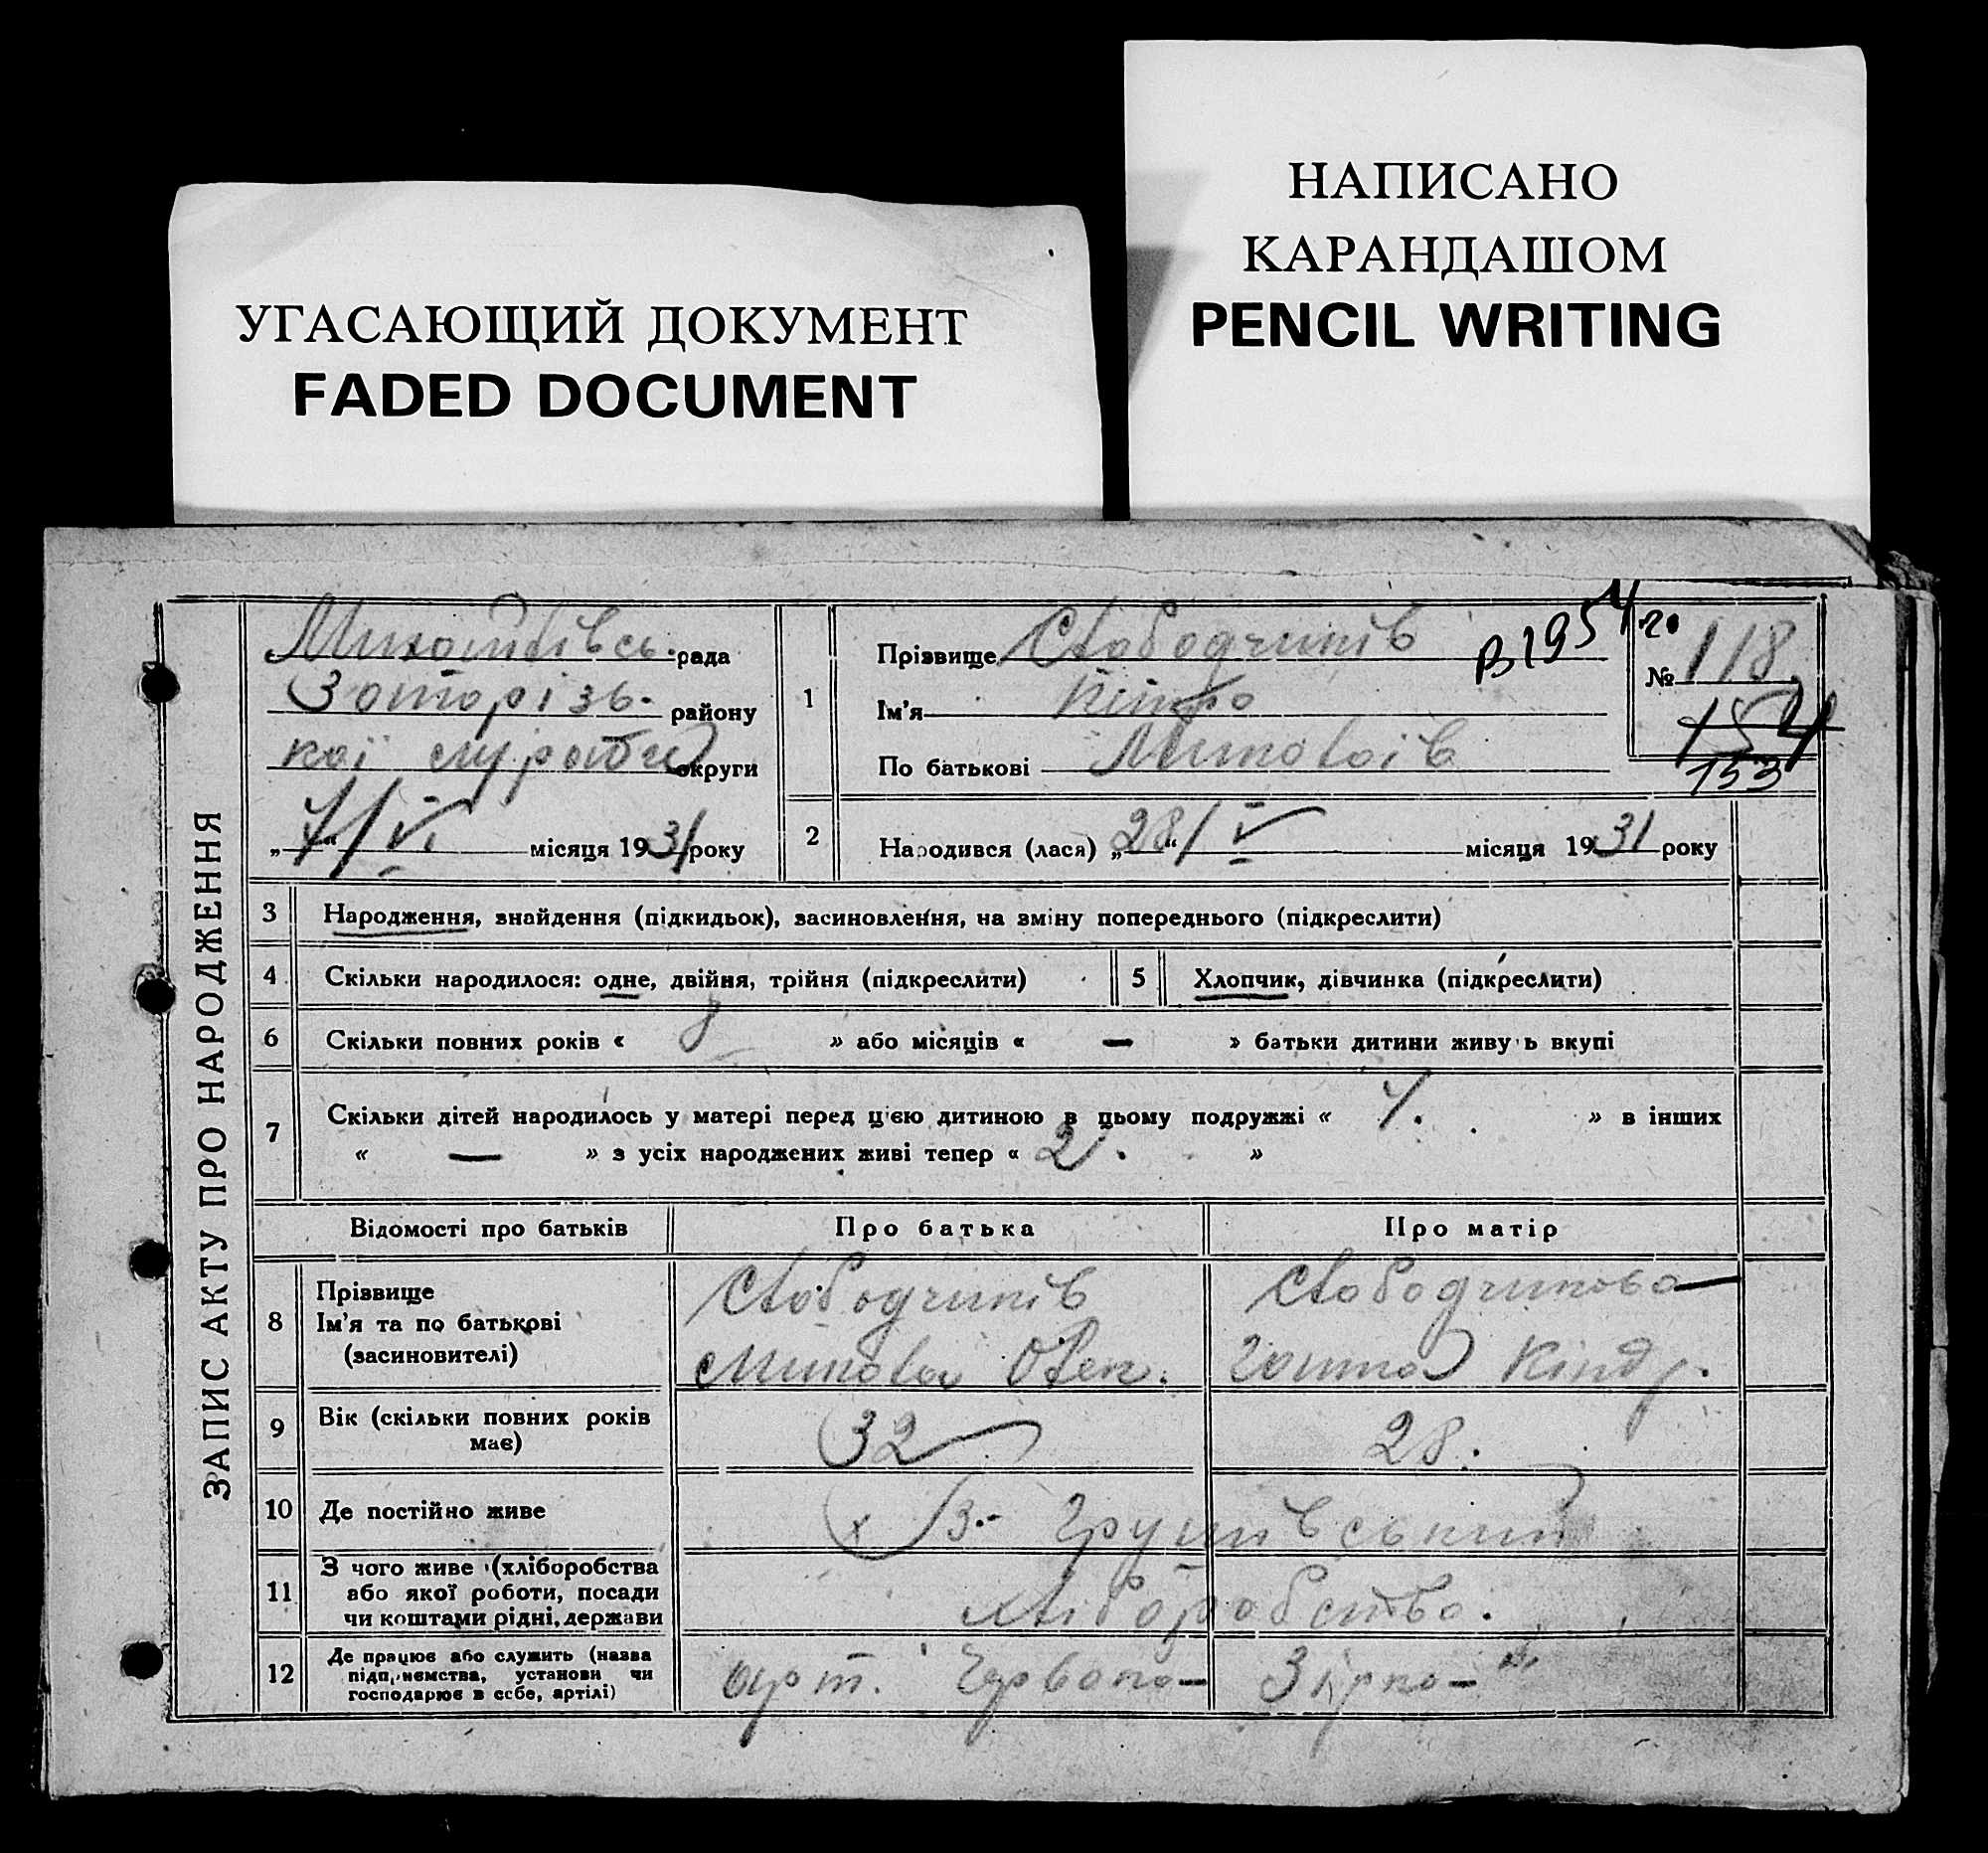 УГАСАЮЩИЙ ДОКУМЕНТ
FADED DOCUMENT
НАПИСАНО
КАРАНДАШОМ
PENCIL WRITING
ЗАПИС АКТУ ПРО НАРОДЖЕННЯ
Михайлівсь. рада
Запорізь. району
кої округи
„7“ VI місяця 1931 року
1
Прізвище Слободчиків
Ім'я
По батькові Миколаїв
В 1954 г.
№ 118
154
153
2
Народився (лася) „28“ V місяця 1931 року
3 Народження, знайдення (підкидьок), засиновлення, на зміну попереднього (підкреслити)
4 Скільки народилося: одне, двійня, трійня (підкреслити)
5 Хлопчик, дівчинка (підкреслити)
6 Скільки повних років « 8 » або місяців « — » батьки дитини живуть вкупі
7 Скільки дітей народилось у матері перед цією дитиною в цьому подружжі « 4. » в інших
« — » з усіх народжених живі тепер « 2. »
Відомості про батьків Про батька Про матір
8
Прізвище
Ім'я та по батькові
(засиновителі)
Слободчиків
Микола Олек.
Слободчикова
Ганна Кіндр.
9 Вік (скільки повних років
має)
32
28.
10 Де постійно живе
х Грушівський
11
З чого живе (хліборобства
або якої роботи, посади
чи коштами рідні, держави
Хліборобство.
12
Де працює або служить (назва
підприємства, установи чи
господарює в себе, артілі)
арт. Червона— Зірка—"